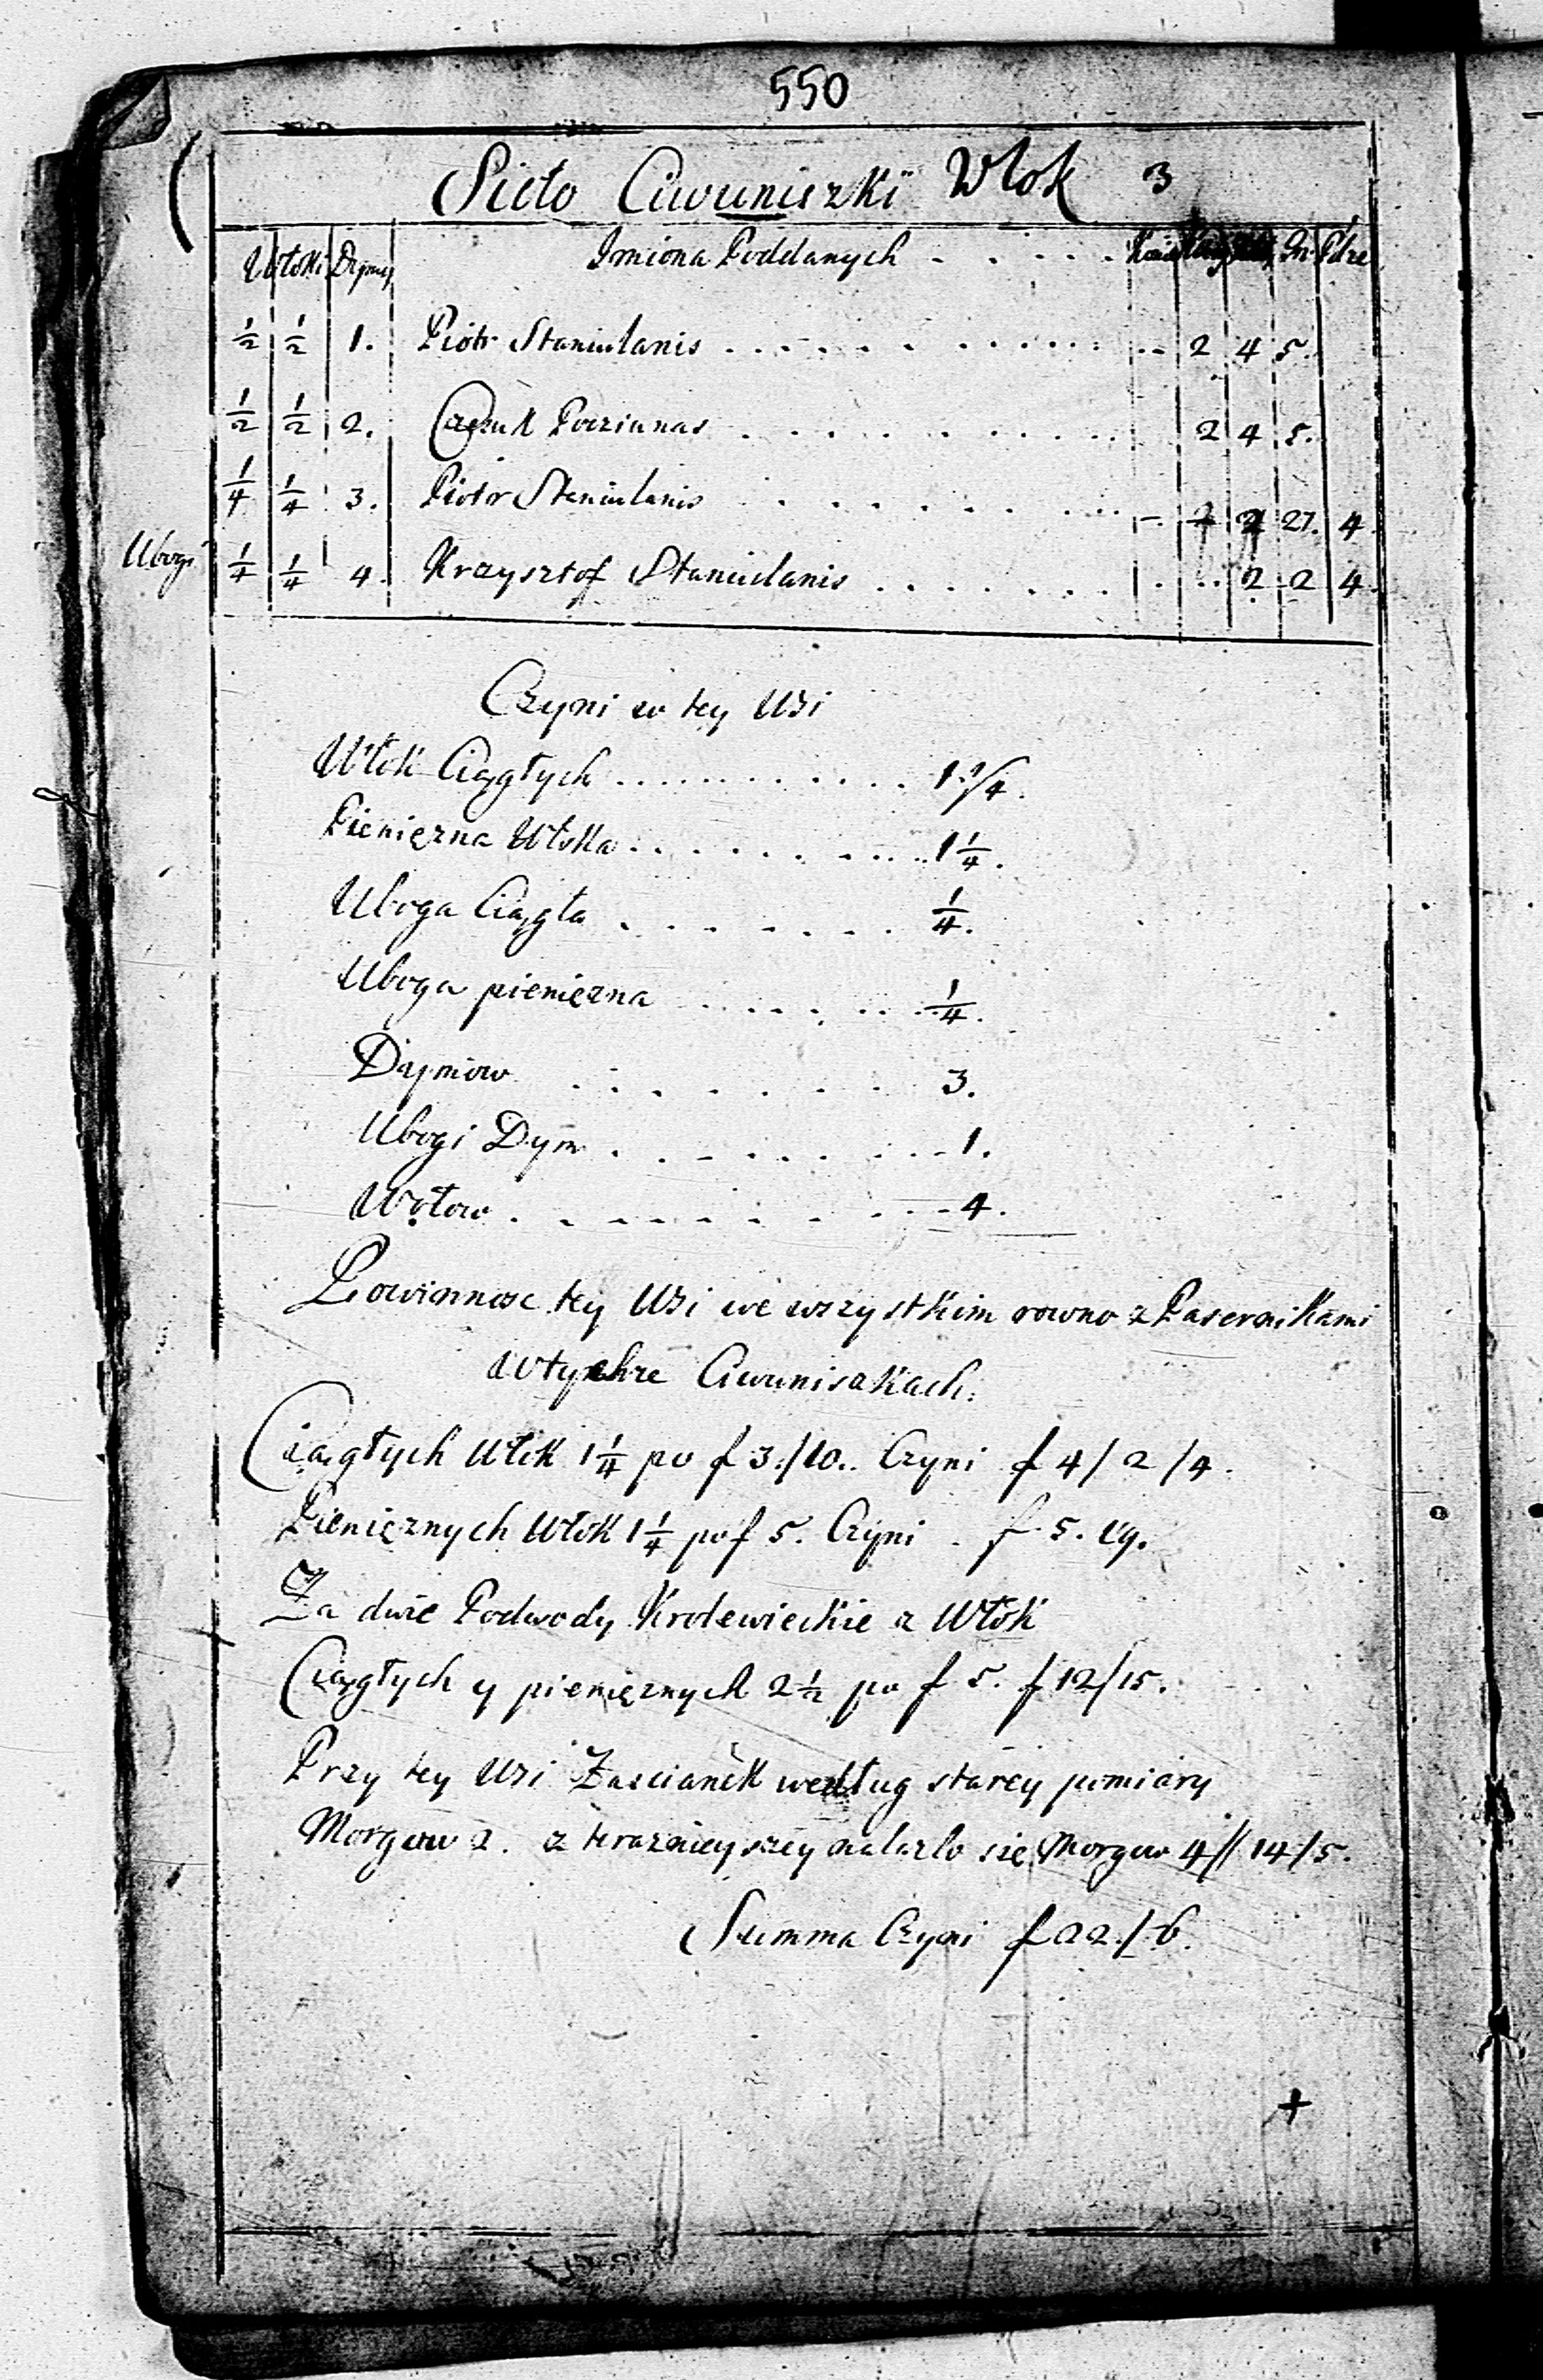 550
Sioło Ciwuniszki Włok 3
Włoki Dymy Imiona Poddanych . . . . . Gr. Pdze
1/2 1/2 1. Piotr Staniulanis . . . . . . . . 2 4 5.
1/2 1/2 2. . . . . . . . . 2 4 5.
1/4 1/4 3. Piotr Staniulanis . . . . . . . . 27. 4
Ubogi 1/4 1/4 4. Krzysztof Staniulanis . . . . . . . . 2 2 4.
Czyni w tey Wsi
Włok Ciągłych . . . . . . . . 1 1/4.
Pienięzna Włoka . . . . . . . . 1 1/4.
Uboga Ciągła . . . . . . . 1/4.
Uboga pienięzna . . . . . . . 1/4.
Dymow . . . . . . . 3.
Ubogi Dym . . . . . . . 1.
Wołow . . . . . . . . 4.
Powinnosc tey Wsi we wszystkim rowno z Pasernikami
w tychze Ciwuniszkach.
Ciągłych Włok 1 1/4 po f 3./10.. Czyni f 4/2/4.
Pienięznych Włok 1 1/4 po f 5. Czyni . f 5.
Za dwie Podwody Krolewieckie z Włok
Ciągłych y pienięznych 2 1/2 po f 5. f 12/15.
Przy tey Wsi Zascianek według starey pomiary
Morgow 2. z teraznieyszey nalazło się Morgow 4// 14/5.
Summa Czyni f 22./6.